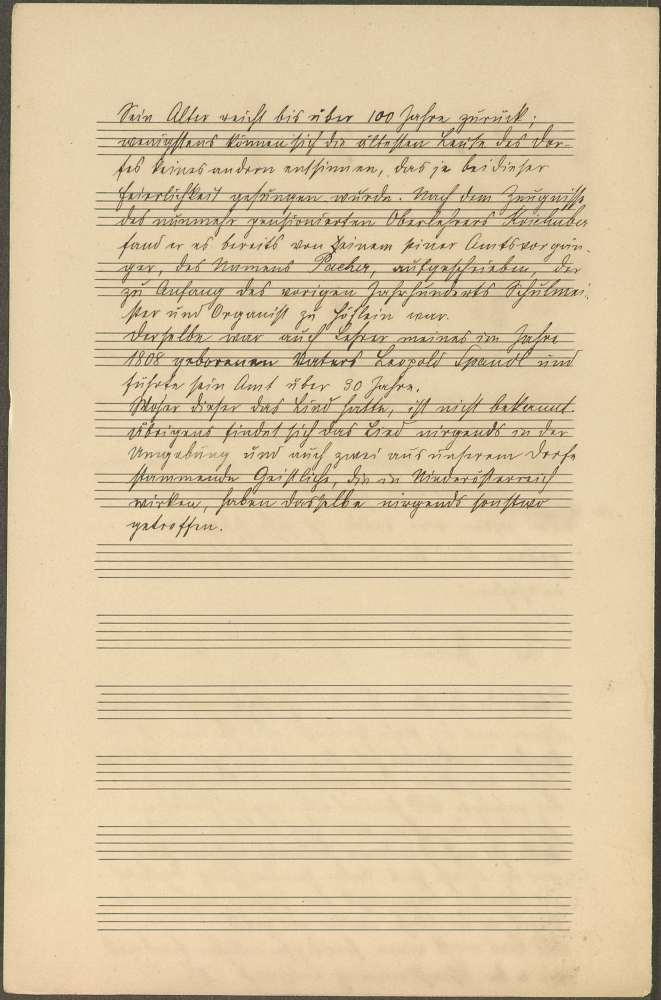 Sein Alter reicht bis über 100 Jahre zurück;
wenigstens können sich die ältesten Leute des Dor-
fes keines andern entsinnen, das je bei dieser
Feierlichkeit gesungen wurde. Nach dem Zeugnisse
des nunmehr pensionierten Oberlehrers
fand er es bereits von seinem seiner Amtsvorgän-
ger, des Namens Pacher, aufgeschrieben, der
zu Anfang des vorigen Jahrhunderts Schulmei-
ster und Organist zu Höflein war.
Derselbe war auch Lehrer meines im Jahre
1808 geborenen Vaters Leopold Spandl und
führte sein Amt über 30 Jahre.
Woher dieser das Lied hatte, ist nicht bekannt.
Übrigens findet sich das Lied nirgends in der
Umgebung und auch zwei aus unserem Dorfe
stammende Geistliche, die in Niederösterreich
wirken, haben dasselbe nirgends sonstwo
getroffen.